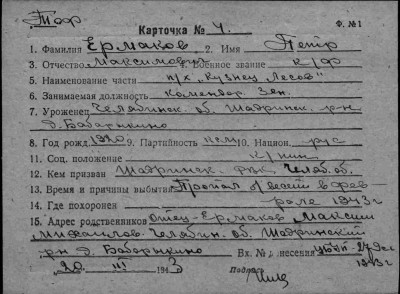 Тоф
Карточка № 4. Ф. №1
1. Фамилия Ермаков 2. Имя Петр
3. Отчество Максимович 4. Военное звание к/ф
5. Наименование части п/х "Кузнец Лесов"
6. Занимаемая должность Командор. Зен.
7. Уроженец Челябинск. об. Шадринск. р-н
д. Бабарыкино
8. Год рожд. 1920 9. Партийность 10. Национ. рус
11. Соц. положение
12. Кем призван Шадринск. РВК Челяб. об.
13. Время и причины выбытия Пропал б/вести в фев
14. Где похоронен рале 1943 г
15. Адрес родственников Отец - Ермаков Максим
Михаилов. Челябин. об. Шадринский
рн д. Бабарыкино Вх. № внесения
20 III 1943 1943 г
Подпись